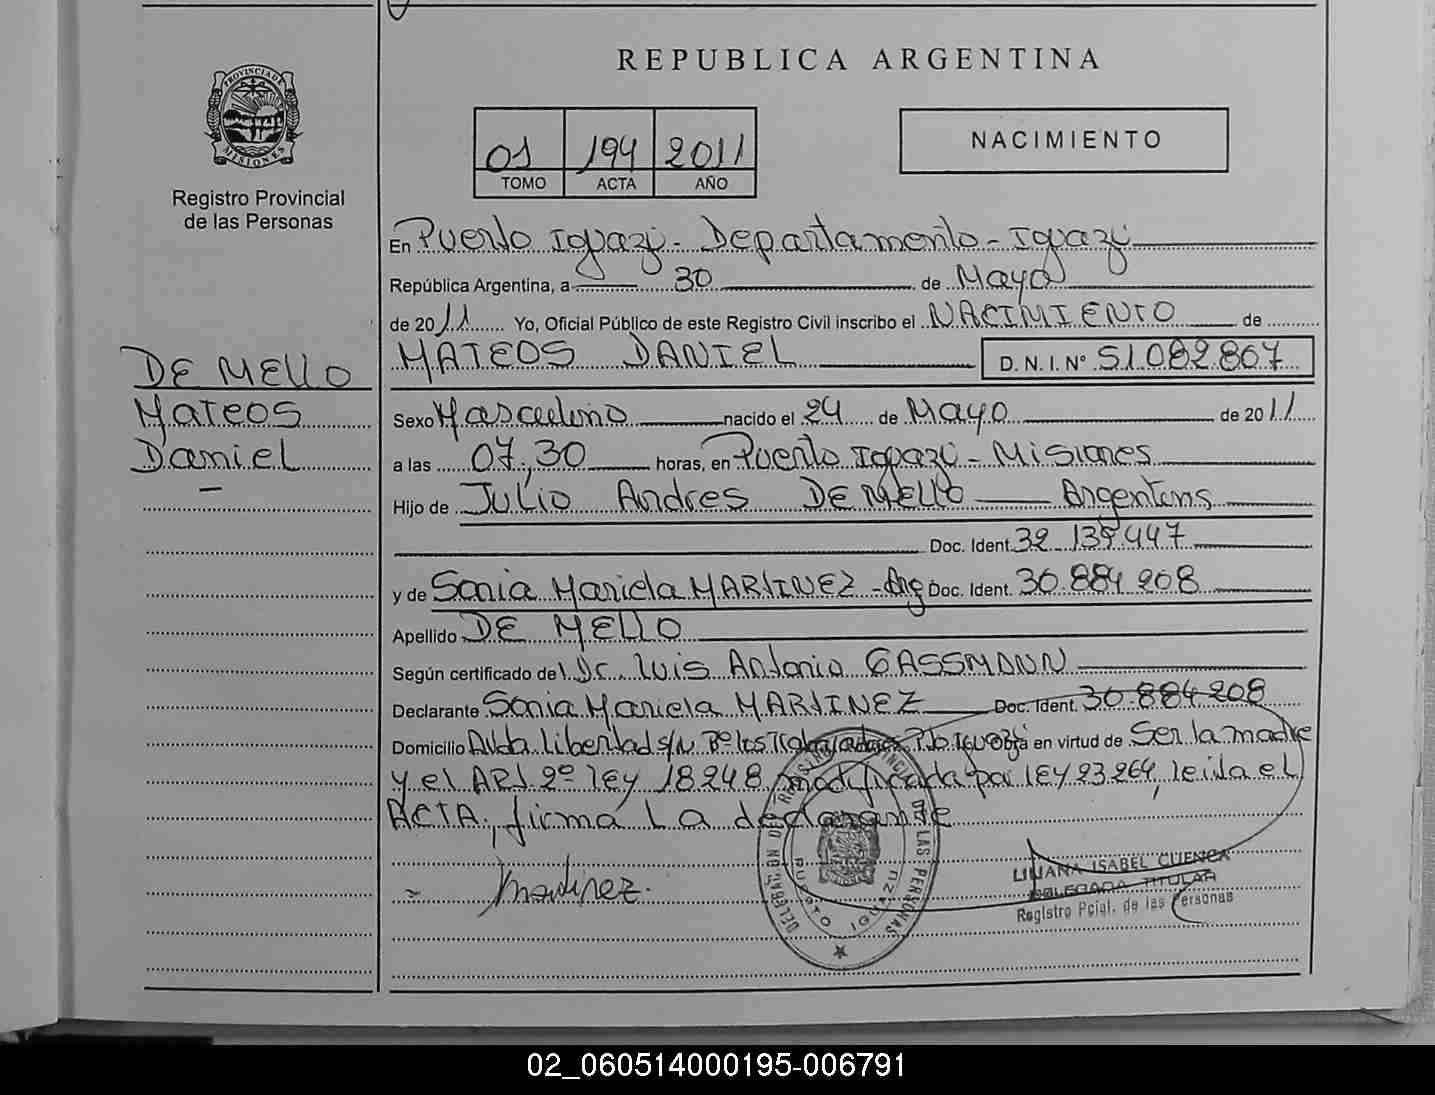 REPUBLICA ARGENTINA
PROVINCIA DE MISIONES
Registro Provincial
de las Personas
01 194 2011
TOMO ACTA AÑO
NACIMIENTO
En Puerto Iguazú - Departamento - Iguazú
República Argentina, a 30 de Mayo
de 2011 Yo, Oficial Público de este Registro Civil inscribo el NACIMIENTO de
MATEOS DANIEL D.N.I. Nº 51.082.867
DE MELLO
Mateos
Daniel
Sexo Masculino nacido el 24 de Mayo de 2011
a las 07,30 horas, en Puerto Iguazú - Misiones
Hijo de Julio Andres DE MELLO Argentino,
Doc. Ident. 32.139.447
y de Sonia Mariela MARTINEZ - Arg Doc. Ident. 30.884.208
Apellido DE MELLO
Según certificado del Dr. Luis Antonio GASSMANN
Declarante Sonia Mariela MARTINEZ Doc. Ident. 30.884.208
Domicilio Avda Libertad s/N Bº los Trabajadores Pto Iguazú Obra en virtud de Ser la madre
y el ART 2º ley 18248 modificada por lEY 23.264, leída el
ACTA, firma La declarante
Martinez.
DELEGACION DEL REGISTRO PROVINCIAL DE LAS PERSONAS
PUERTO IGUAZU
LILIANA ISABEL CUENCA
DELEGADA TITULAR
Registro Pcial. de las Personas
02_060514000195-006791